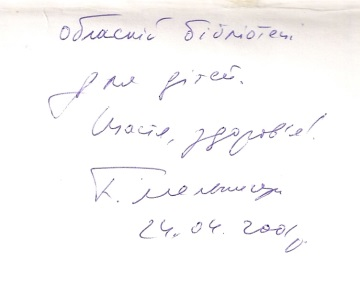 Обласній бібліотеці
для дітей.
Щастя, здоров'я!
24.04.2001р.